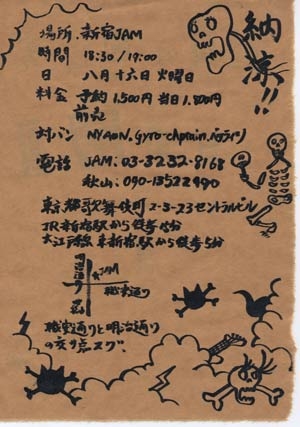 納涼!!
場所. 新宿JAM
時間 18:30/19:00
日 八月十六日 火曜日
料金 予約 1,500円 当日 1,800円
前売
対バン NYAON. Gyro-
電話 JAM: 03-3232-8168
秋山: 090-13522490
東京都歌舞伎町 2-3-23 セントラルビル
JR新宿駅から徒歩
大江戸線 東新宿駅から徒歩5分
JAM
職安通り
明治通り
職安通りと明治通り
の交差点スグ.